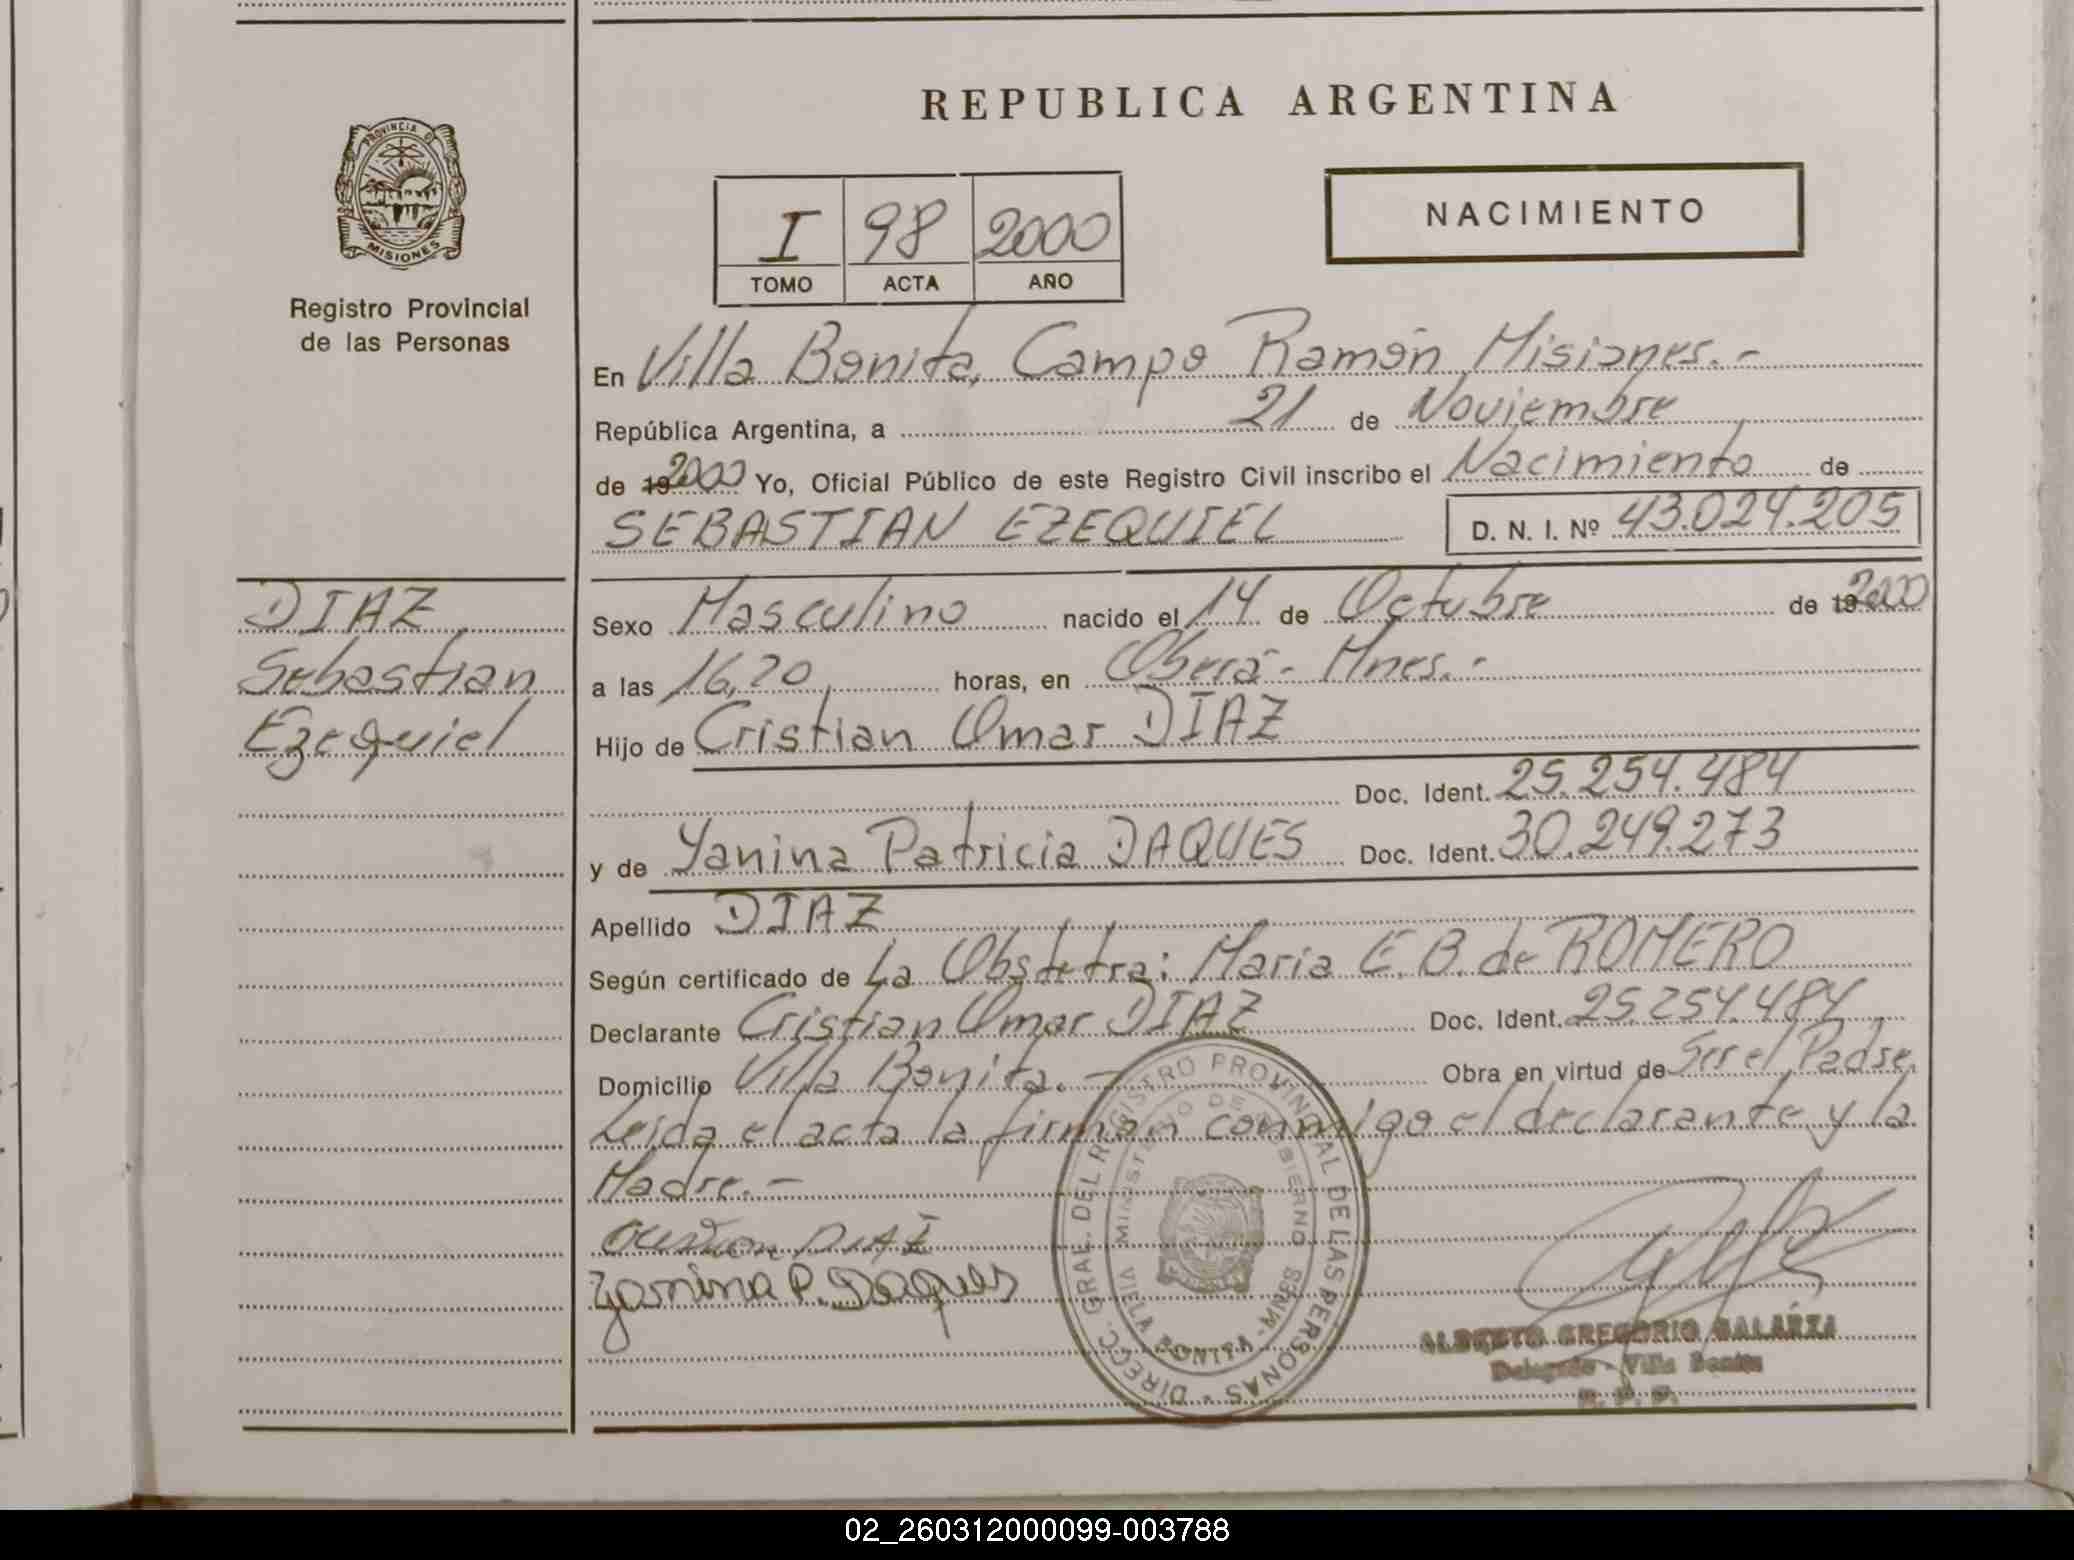 REPUBLICA ARGENTINA
PROVINCIA D
MISIONES
Registro Provincial
de las Personas
I 98 2000
TOMO ACTA AÑO
NACIMIENTO
En Villa Bonita, Campo Ramón Misiones.-
República Argentina, a 21 de Noviembre
de 19 2000 Yo, Oficial Público de este Registro Civil inscribo el Nacimiento de
SEBASTIAN EZEQUIEL D. N. I. Nº 43.024.205
DIAZ
Sebastian
Ezequiel
Sexo Masculino nacido el 14 de Octubre de 19 2000
a las 16,20 horas, en Oberá - Mnes.-
Hijo de Cristian Omar DIAZ
Doc. Ident. 25.254.484
y de Yanina Patricia DAQUES Doc. Ident. 30.249.273
Apellido DIAZ
Según certificado de La Obstetra: Maria E. B. de ROMERO
Declarante Cristian Omar DIAZ Doc. Ident. 25.254.484
Domicilio Villa Bonita.- Obra en virtud de Ser el Padre.
Leida el acta la firman conmigo el declarante y la
Madre.-
DIAZ
Yanina P. Daques
DIRECC. GRAL. DEL REGISTRO PROVINCIAL DE LAS PERSONAS
MINISTERIO DE GOBIERNO
VILLA BONITA - MNES
ALBERTO GREGORIO GALARZA
Delegado - Villa Bonita
R. P. P.
02_260312000099-003788